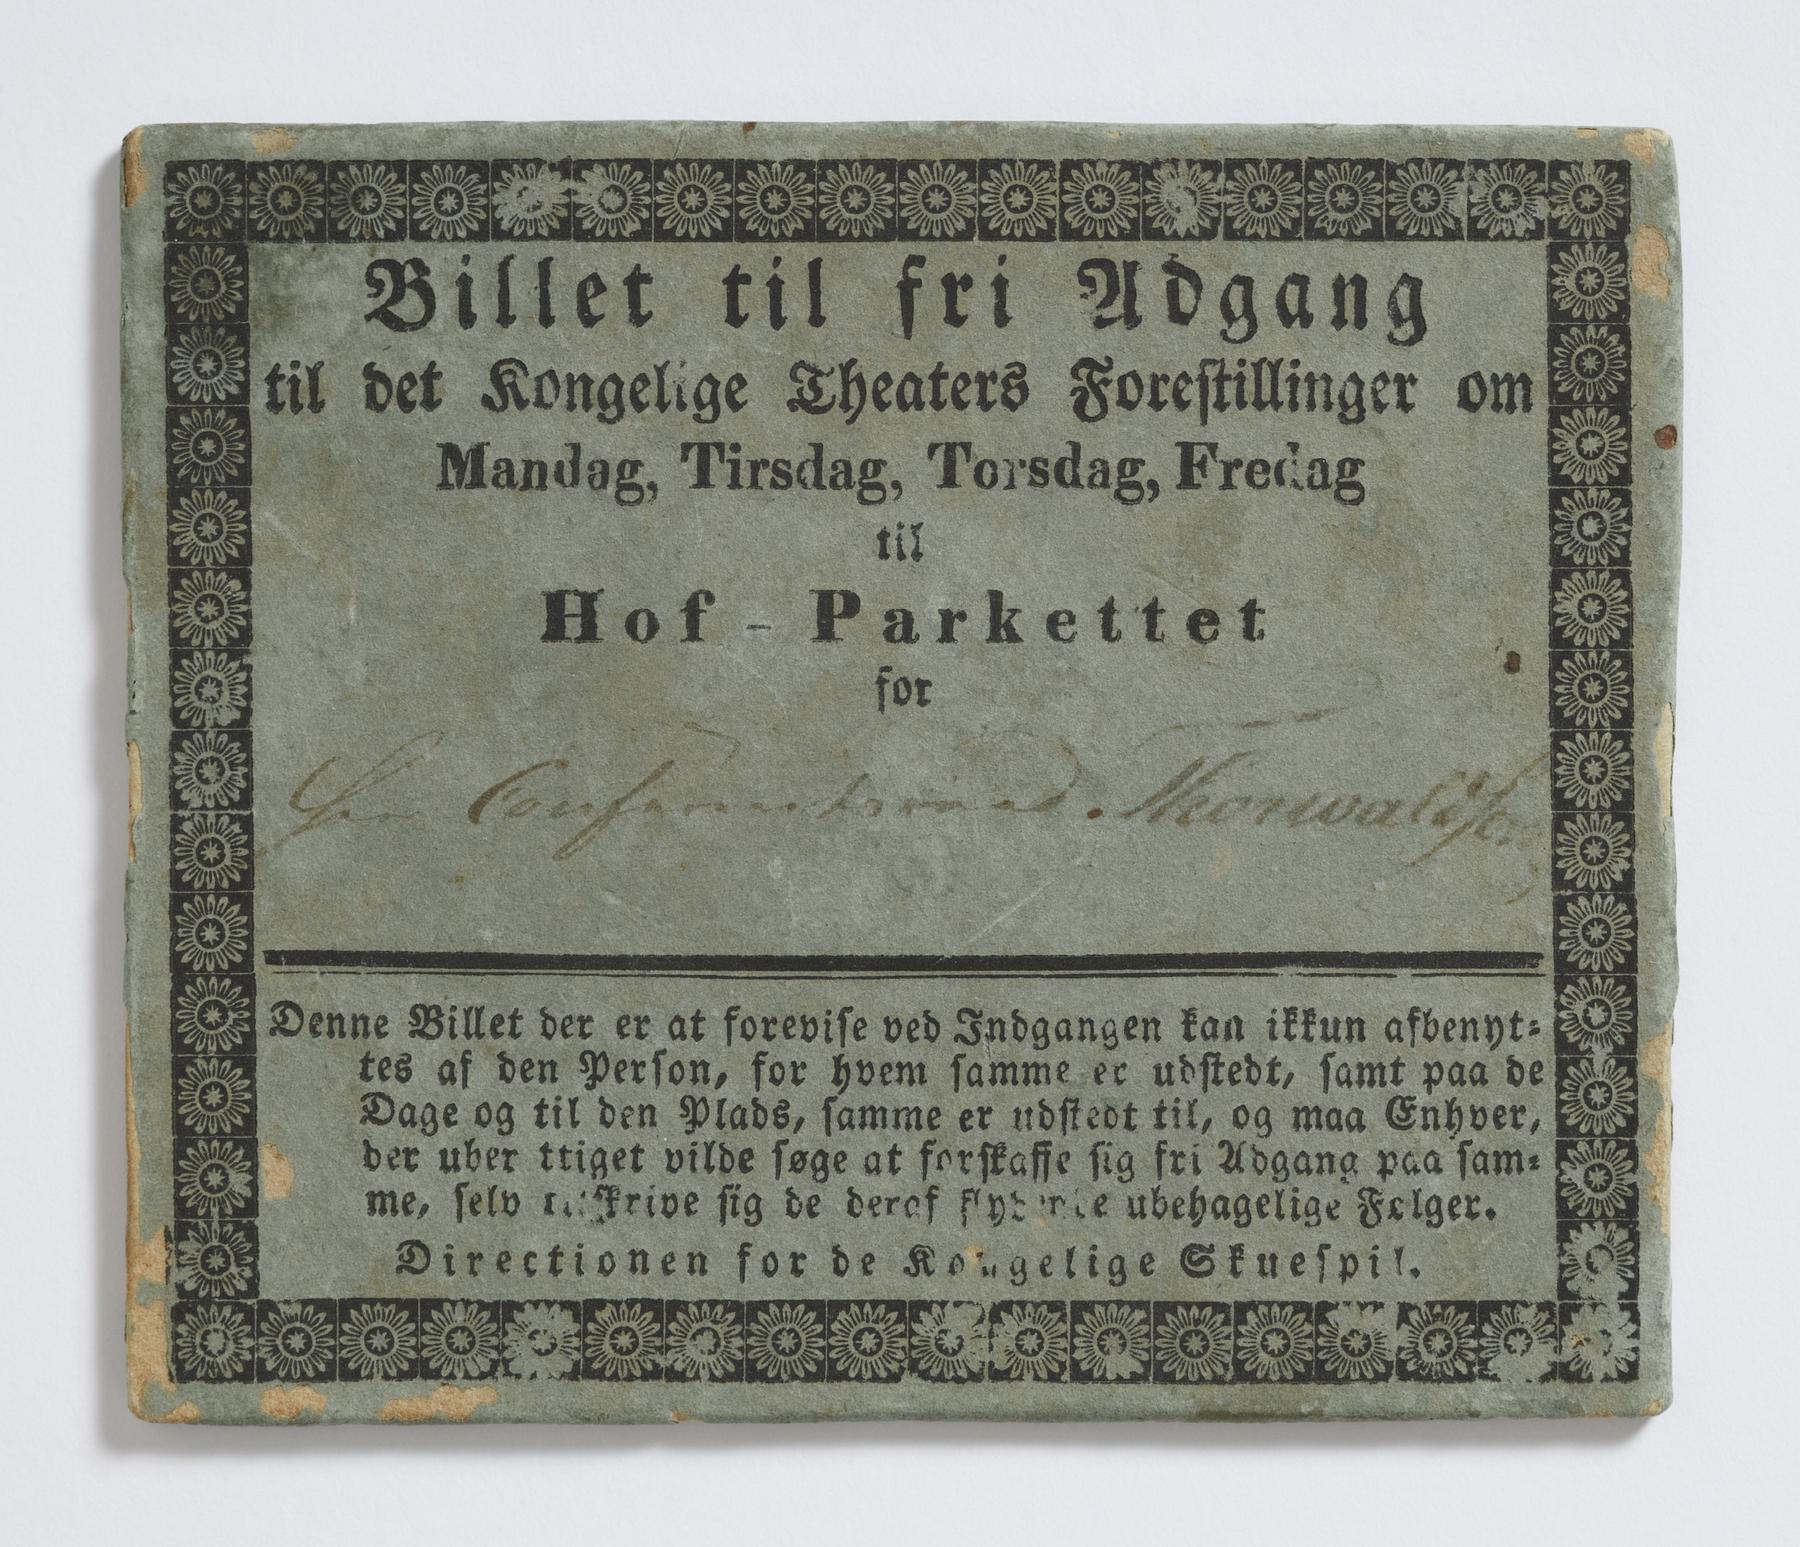 Billet til fri Adgang
til det Kongelige Theaters Forestillinger om
Mandag, Tirsdag, Torsdag, Fredag
til
Hof - Parkettet
for
Herr Conferentsraad Thorwaldsen
Denne Billet der er at forevise ved Indgangen kan ikkun afbenyt=
tes af den Person, for hvem samme er udstedt, samt paa de
Dage og til den Plads, samme er udstedt til, og maa Enhver,
der uber ttiget vilde søge at forskaffe sig fri Adgang paa sam=
me, selv tilskrive sig de deraf flydende ubehagelige Følger.
Directionen for de Kongelige Skuespil.